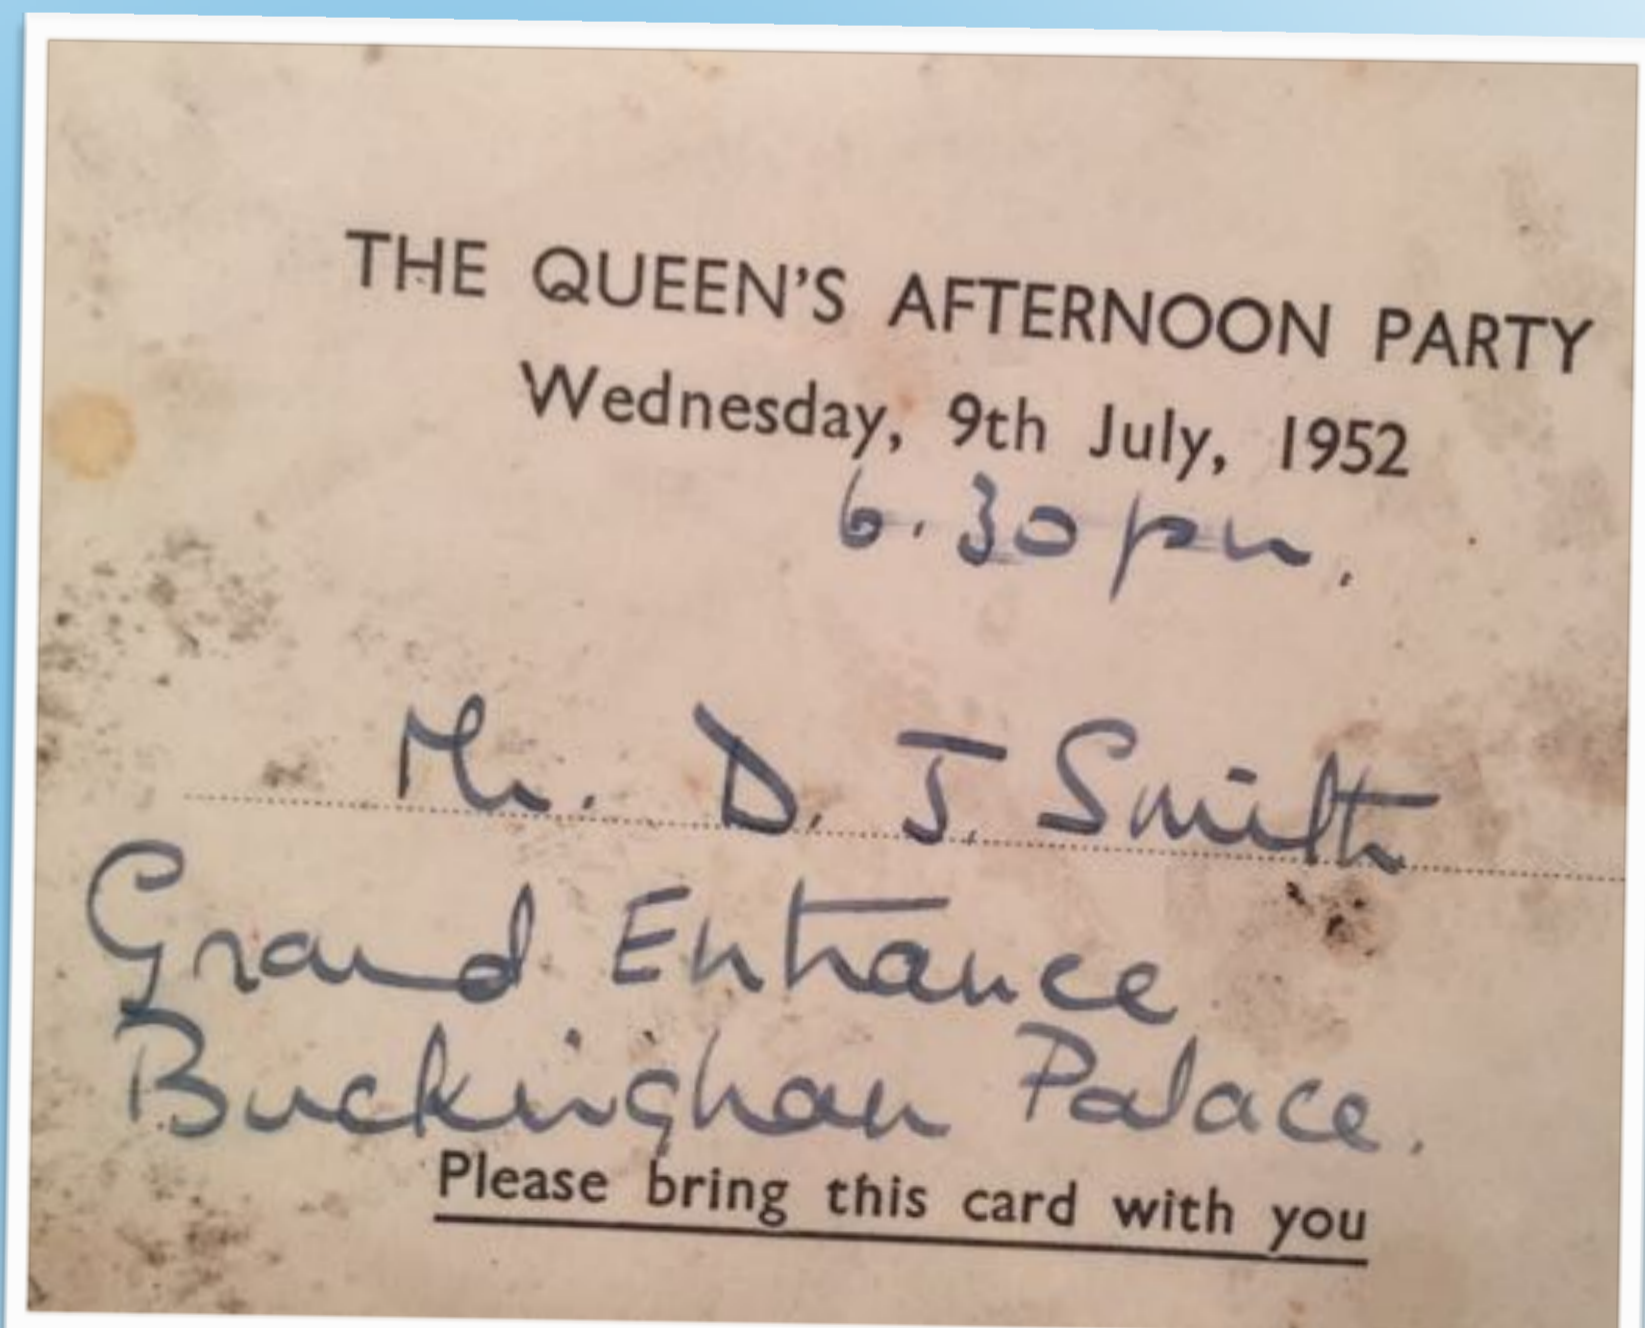 THE QUEEN'S AFTERNOON PARTY
Wednesday, 9th July, 1952
6.30 pm.
Mr. D. J. Smith
Grand Entrance
Buckingham Palace.
Please bring this card with you